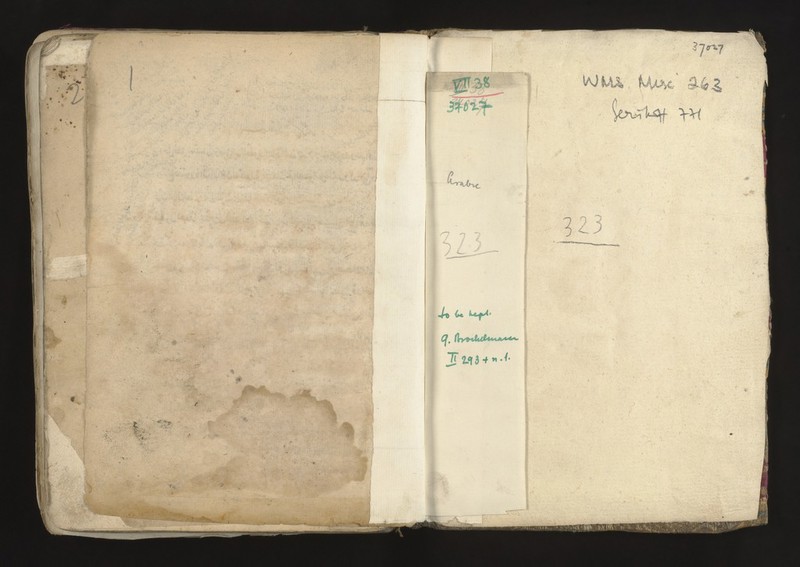 2
1
VII 38
37027
Arabic
323
to be kept.
q. Brockelmann
II 293 + n.1.
37027
WMS. Misc 263
323